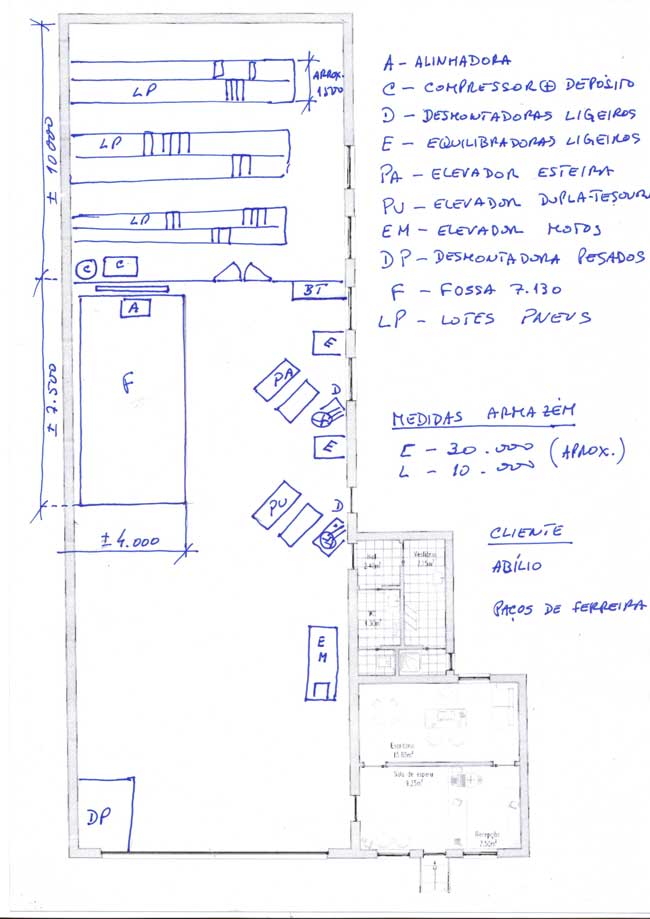 A - ALINHADORA
C - COMPRESSOR ⊕ DEPÓSITO
D - DESMONTADORAS LIGEIROS
E - EQUILIBRADORAS LIGEIROS
PA - ELEVADOR ESTEIRA
PU - ELEVADOR DUPLA-TESOURA
EM - ELEVADOR MOTOS
DP - DESMONTADORA PESADOS
F - FOSSA 7.130
LP - LOTES PNEUS
MEDIDAS ARMAZÉM
C - 30.000 (APROX.)
L - 10.000
CLIENTE
ABÍLIO
PAÇOS DE FERREIRA
± 10000
LP
APROX.
1500
LP
LP
C
C
BT
A
E
± 7.500
F
PA
D
E
PU
D
± 4.000
Hall
2.40m²
Vestiário
WC
E
M
Escritório
Sala de espera
9.25m²
Recepção
7.50m²
DP